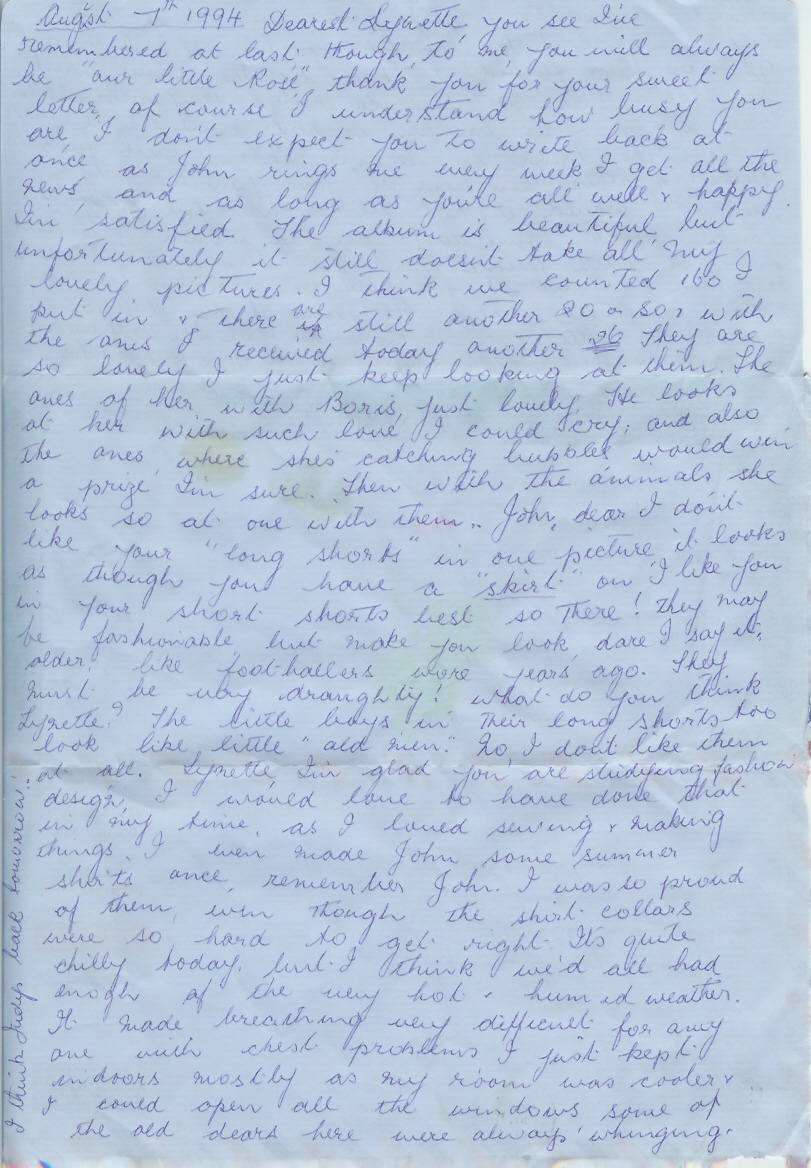 August 7th 1994 Dearest Lynette you see I've
remembered at last though, to me, you will always
be "our little Rose", thank you for your sweet
letter, of course I understand how busy you
are I don't expect you to write back at
once as John rings me every week I get all the
news, and as long as you're all well & happy.
I'm satisfied. The album is beautiful but
unfortunately it still doesn't take all my
lovely pictures. I think we counted 160 I
put in & there are still another 20 or so, with
the ones I received today another 26 They are
so lovely I just keep looking at them. The
ones of her with Boris, just lovely. He looks
at her with such love I could cry; and also
the ones where she's catching bubbles would win
a prize I'm sure. Then with the animals she
looks so at one with them.. John, dear I don't
like your "long shorts" in one picture it looks
as though you have a "skirt" on I like you
in your short shorts best so there! They may
be fashionable but make you look, dare I say it,
older, like footballers wore years ago. They
must be very draughty! what do you think
Lynette? The little boys in their long shorts too
look like little "old men". No I dont like them
at all. Lynette I'm glad you are studying fashion
design, I would love to have done that
in my time, as I loved sewing & making
things. I even made John some summer
shirts once, remember John. I was so proud
of them, even though the shirt collars
were so hard to get right. Its quite
chilly today, but I think we'd all had
enogh of the very hot & humid weather.
It made breathing very difficult for any
one with chest problems I just kept
indoors mostly as my room was cooler &
I could open all the windows some of
the old dears here were always whinging.
I think Judys back tomorrow!